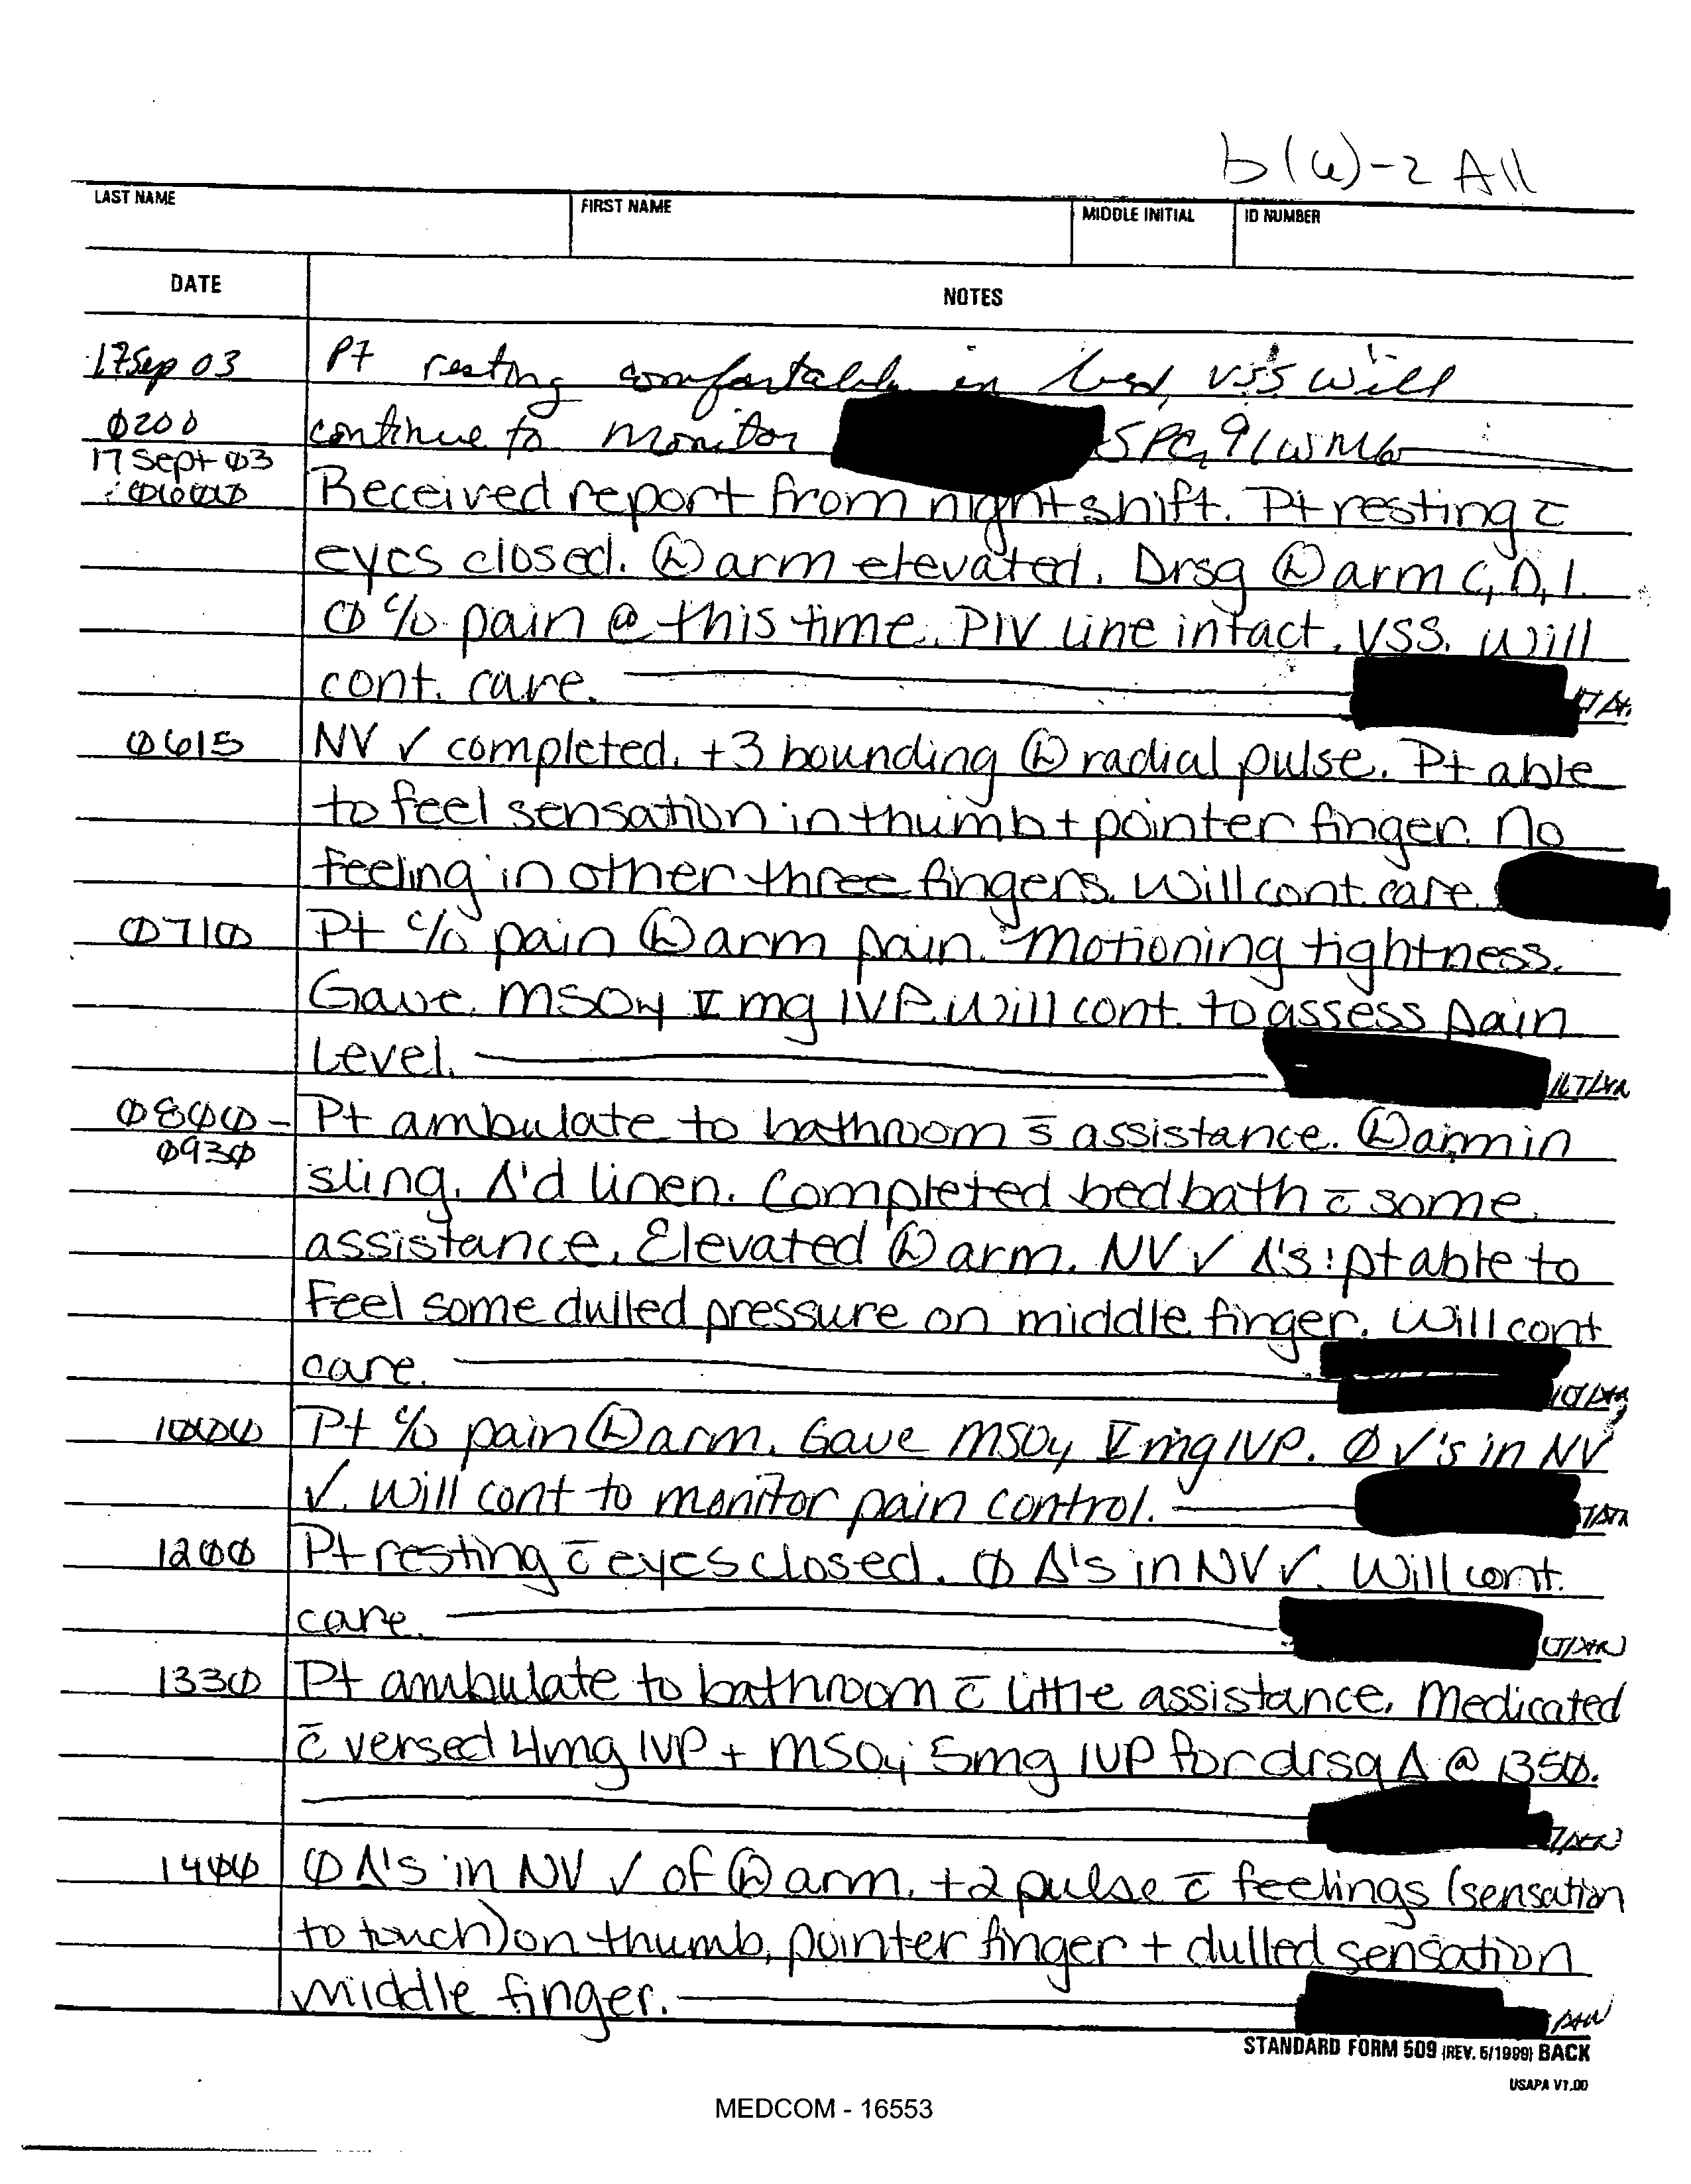 b(6)-2 All
LAST NAME FIRST NAME MIDDLE INITIAL ID NUMBER
DATE NOTES
17Sep 03 Pt resting comfortable in bed, VSS will
Ø200 continue to monitor SPC, 91WM6
17 Sept Ø3
Ø6ØØ Received report from night shift. Pt resting c̄
eyes closed. Ⓛ arm elevated. Drsg Ⓛ arm C, D, I.
Ø c/o pain @ this time. PIV line intact. VSS. Will
cont. care.
Ø615 NV ✓ completed. +3 bounding Ⓛ radial pulse. Pt able
to feel sensation in thumb + pointer finger. No
feeling in other three fingers. Will cont. care.
Ø71Ø Pt c/o pain Ⓛ arm pain. Motioning tightness.
Gave MSO4 V mg IVP. Will cont. to assess pain
Level.
Ø8ØØ - Pt ambulate to bathroom s̄ assistance. Ⓛ arm in
Ø93Ø sling. Δ'd linen. Completed bedbath c̄ some
assistance. Elevated Ⓛ arm. NV ✓ Δ's: pt able to
Feel some dulled pressure on middle finger. Will cont
care.
1ØØØ Pt c/o pain Ⓛ arm. Gave MSO4 V mg IVP. Ø ✓'s in NV
✓. Will cont to monitor pain control.
12ØØ Pt resting c̄ eyes closed. Ø Δ's in NV ✓. Will cont.
care.
133Ø Pt ambulate to bathroom c̄ little assistance. Medicated
c̄ versed 4mg IVP + MSO4 5mg IVP for drsg Δ @ 135Ø.
14ØØ Ø Δ's in NV ✓ of Ⓛ arm. +2 pulse c̄ feelings (sensation
to touch) on thumb, pointer finger + dulled sensation
middle finger.
STANDARD FORM 509 (REV. 5/1999) BACK
USAPA V1.00
MEDCOM - 16553